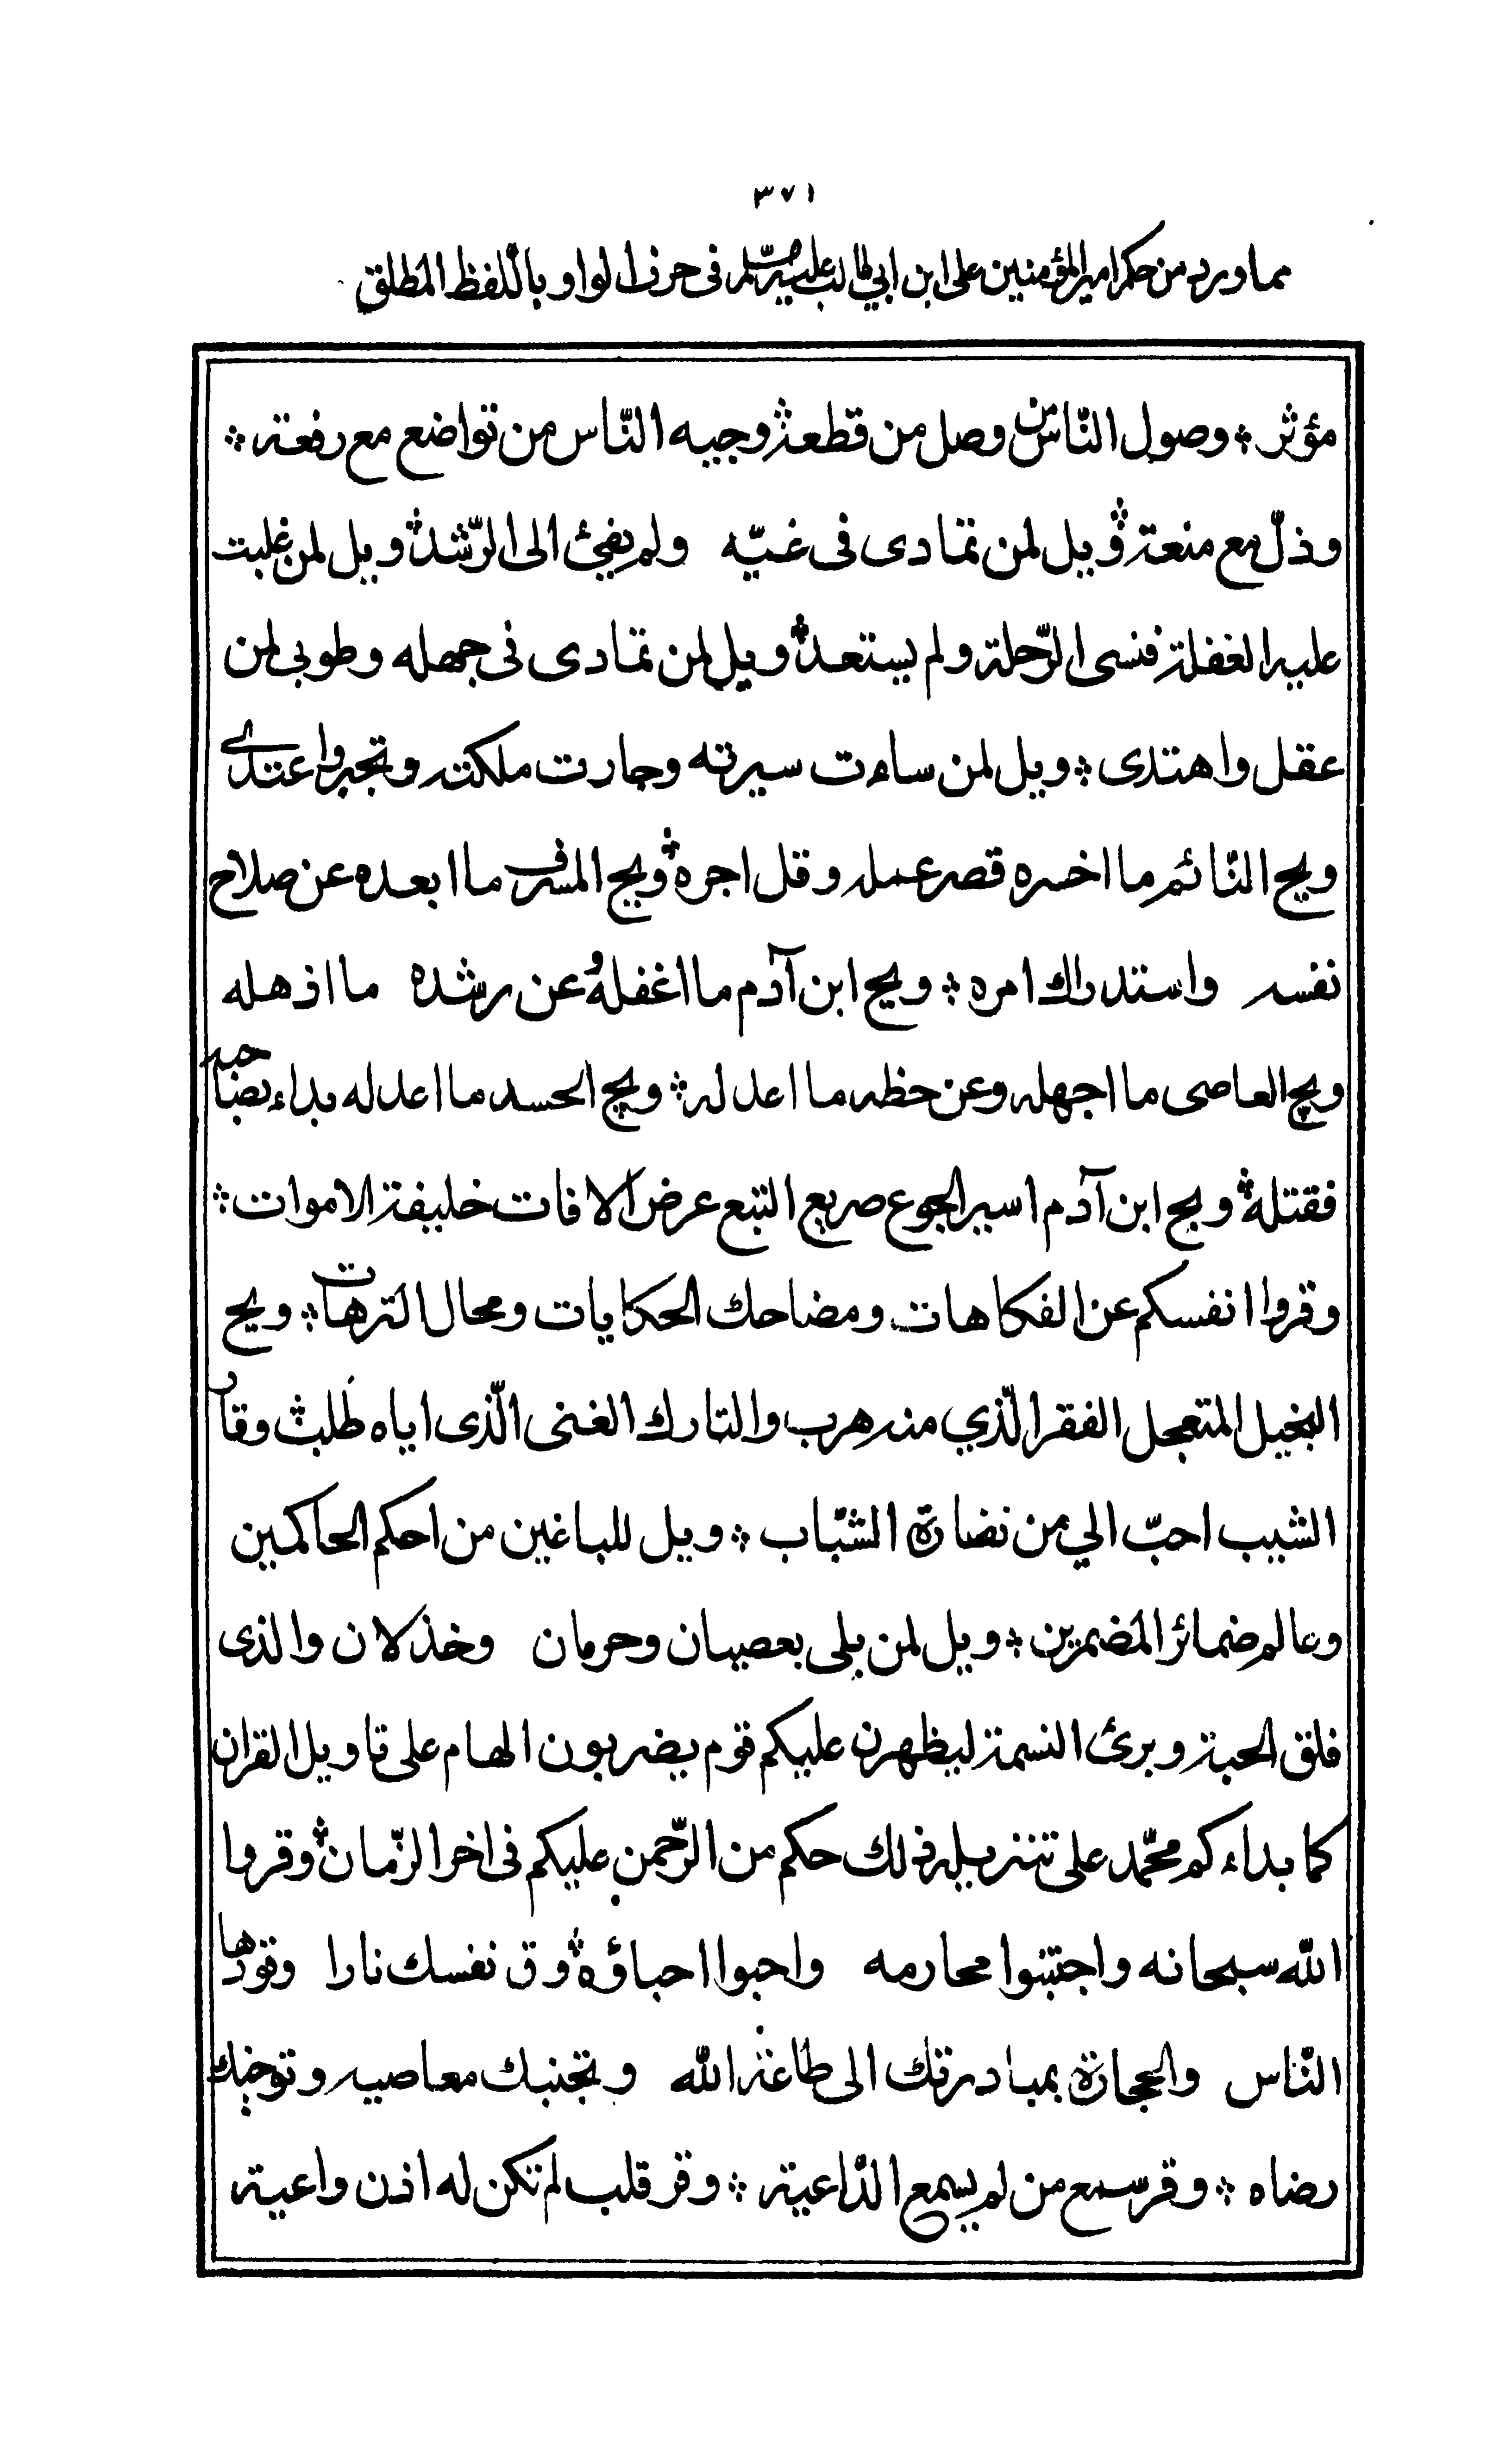 ٣٧١
مما ورد من حكم امير المؤمنين على ابن ابي طالب عليه فى حرف الواو باللّفظ المطلق
مؤثر ؞ وصول النّاس من وصل من قطعه ؞ وجيه النّاس من تواضع مع رفعة ؞
وذلّ مع منعة ؞ ويل لمن تمادى فى غيّه ولم يفئ الى الرّشد ؞ ويل لمن غلبت
عليه الغفلة فنسى الرّحلة ولم يستعد ؞ ويل لمن تمادى فى جهله وطوبى لمن
عقل واهتدى ؞ ويل لمن ساءت سيرته وجارت ملكته وتجبر واعتدى
ويح النّائم ما اخسره قصر عمله وقل اجره ؞ ويح المسرف ما ابعده عن صلاح
نفسه واستدراك امره ؞ ويح ابن آدم ما اغفله وعن رشده ما اذهله
ويح العاصى ما اجهله وعن حظه ما اعدله ؞ ويح الحسد ما اعدله بداء بصاحبه
فقتله ؞ ويح ابن آدم اسير الجوع صريع الشبع عرض الافات خليفة الاموات ؞
وقروا انفسكم عن الفكاهات ومضاحك الحكايات ومحال الترهات ؞ ويح
البخيل المتعجل الفقر الّذي منه هرب والتارك الغنى الّذى اياه طلب ؞ وقار
الشيب احبّ الي من نضارة الشّباب ؞ ويل للباغين من احكم الحاكمين
وعالم ضمائر المضمرين ؞ ويل لمن بلى بعصيان وحرمان وخذلان والذى
فلق الحبة وبرئ النسمة ليظهرن عليكم قوم يضربون الهام على تاويل القران
كما بداءكم محمّد على تنزيله ذلك حكم من الرّحمن عليكم فى اخر الزّمان ؞ وقروا
اللّه سبحانه واجتنبوا محارمه واحبوا احباؤه ؞ وق نفسك نارا وقودها
النّاس والحجارة بمبادرتك الى طاعة اللّه وتجنبك معاصيه وتوخيك
رضاه ؞ وقر سمع من لم يسمع الدّاعية ؞ وقر قلب لم تكن له اذن واعية